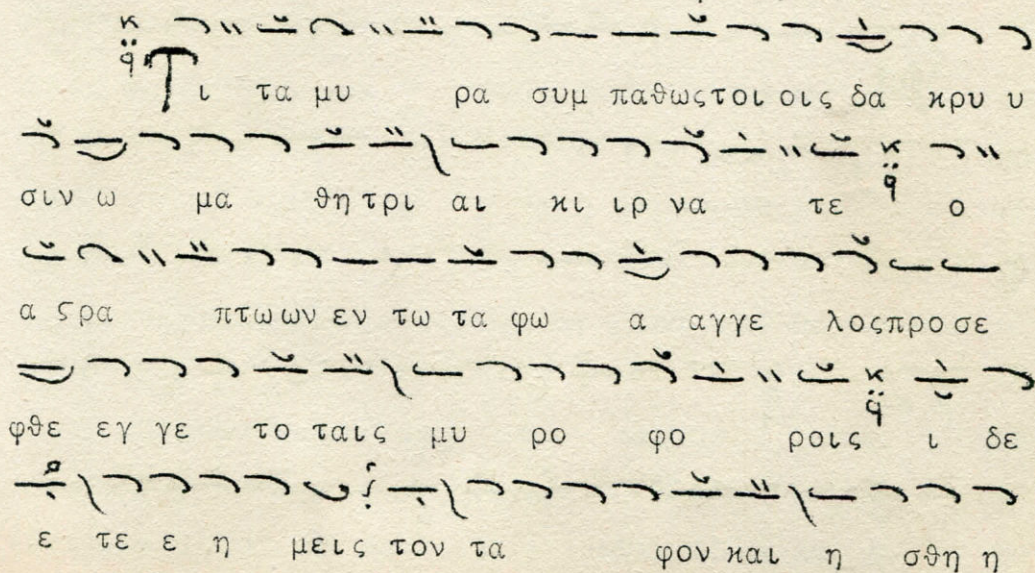 Τι τα μυ ρα συμ παθωςτοι οις δα κρυ υ
σιν ω μα θη τρι αι κι ιρ να τε ο
α ϛρα πτω ων εν τω τα φω α αγγε λοςπρο σε
φθε εγ γε το ταις μυ ρο φο ροις ι δε
ε τε ε η μεις τον τα φον και η σθη η